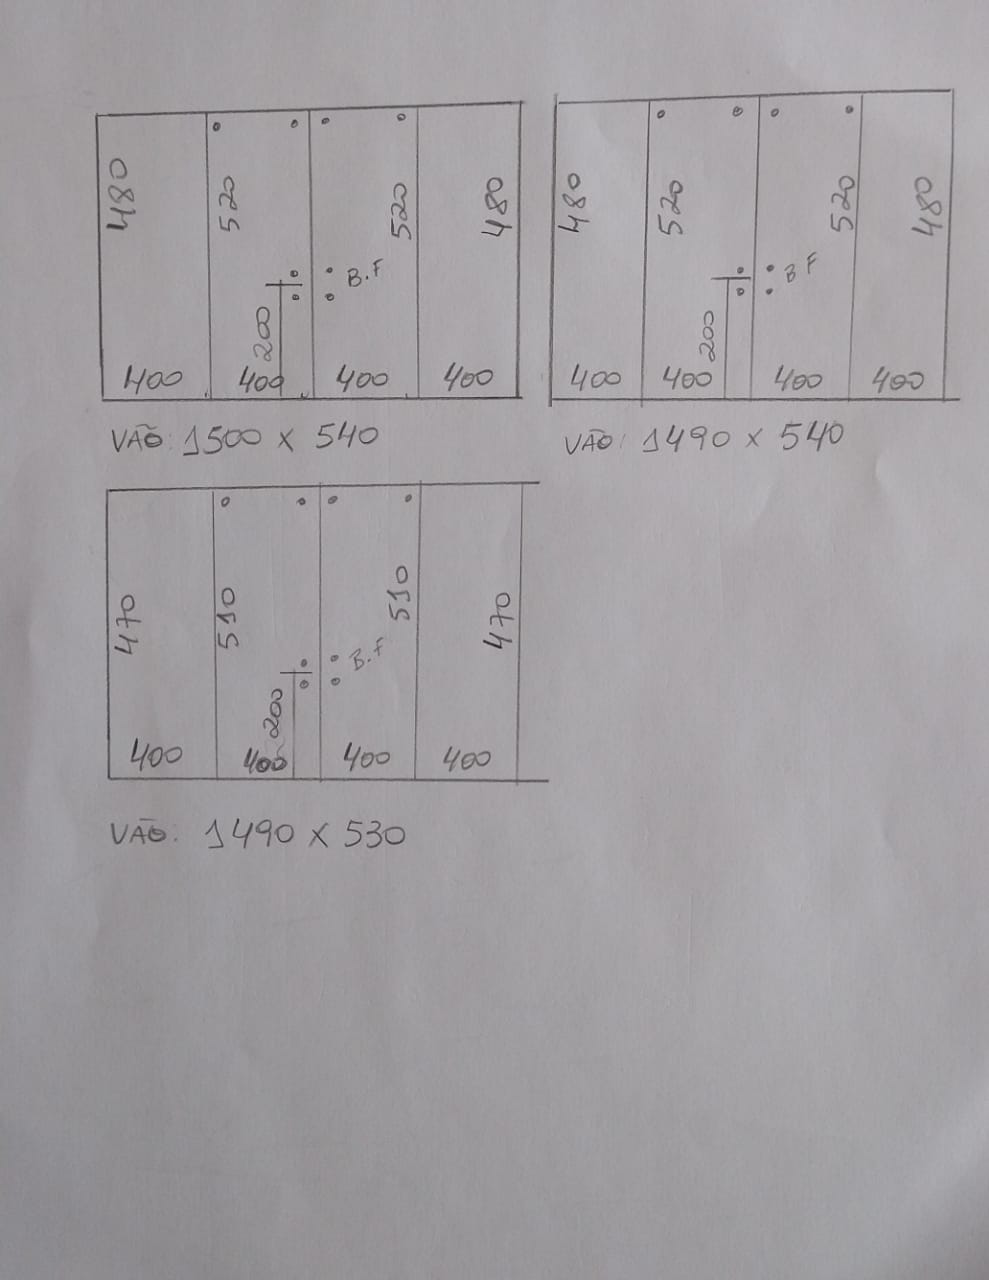 480 520 520 480
B.F
200
400 400 400 400
VÃO: 1500 X 540
480 520 520 480
B F
200
400 400 400 400
VÃO: 1490 X 540
470 510 510 470
B.F
200
400 400 400 400
VÃO: 1490 X 530